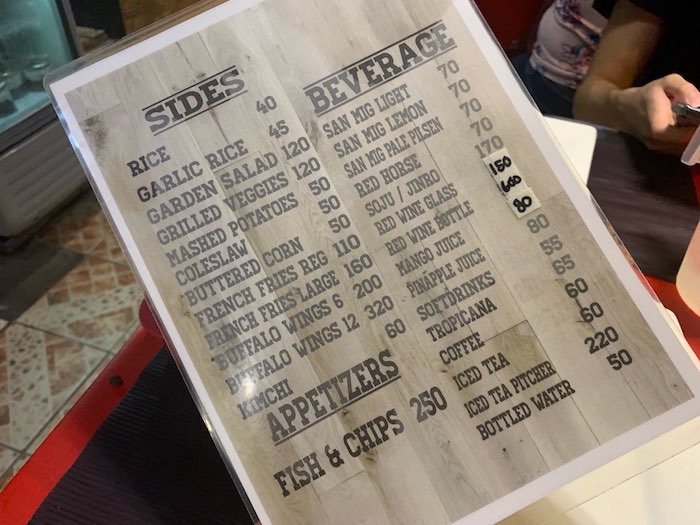 SIDES
RICE 40
GARLIC RICE 45
GARDEN SALAD 120
GRILLED VEGGIES 120
MASHED POTATOES 50
COLESLAW 50
BUTTERED CORN 50
FRENCH FRIES REG 110
FRENCH FRIES LARGE 160
BUFFALO WINGS 6 200
BUFFALO WINGS 12 320
KIMCHI 60
APPETIZERS
FISH & CHIPS 250
BEVERAGE
SAN MIG LIGHT 70
SAN MIG LEMON 70
SAN MIG PALE PILSEN 70
RED HORSE 70
SOJU / JINRO 170
RED WINE GLASS 150
RED WINE BOTTLE
MANGO JUICE 80
PINAPPLE JUICE 80
SOFTDRINKS 55
TROPICANA 65
COFFEE 60
ICED TEA 60
ICED TEA PITCHER 220
BOTTLED WATER 50